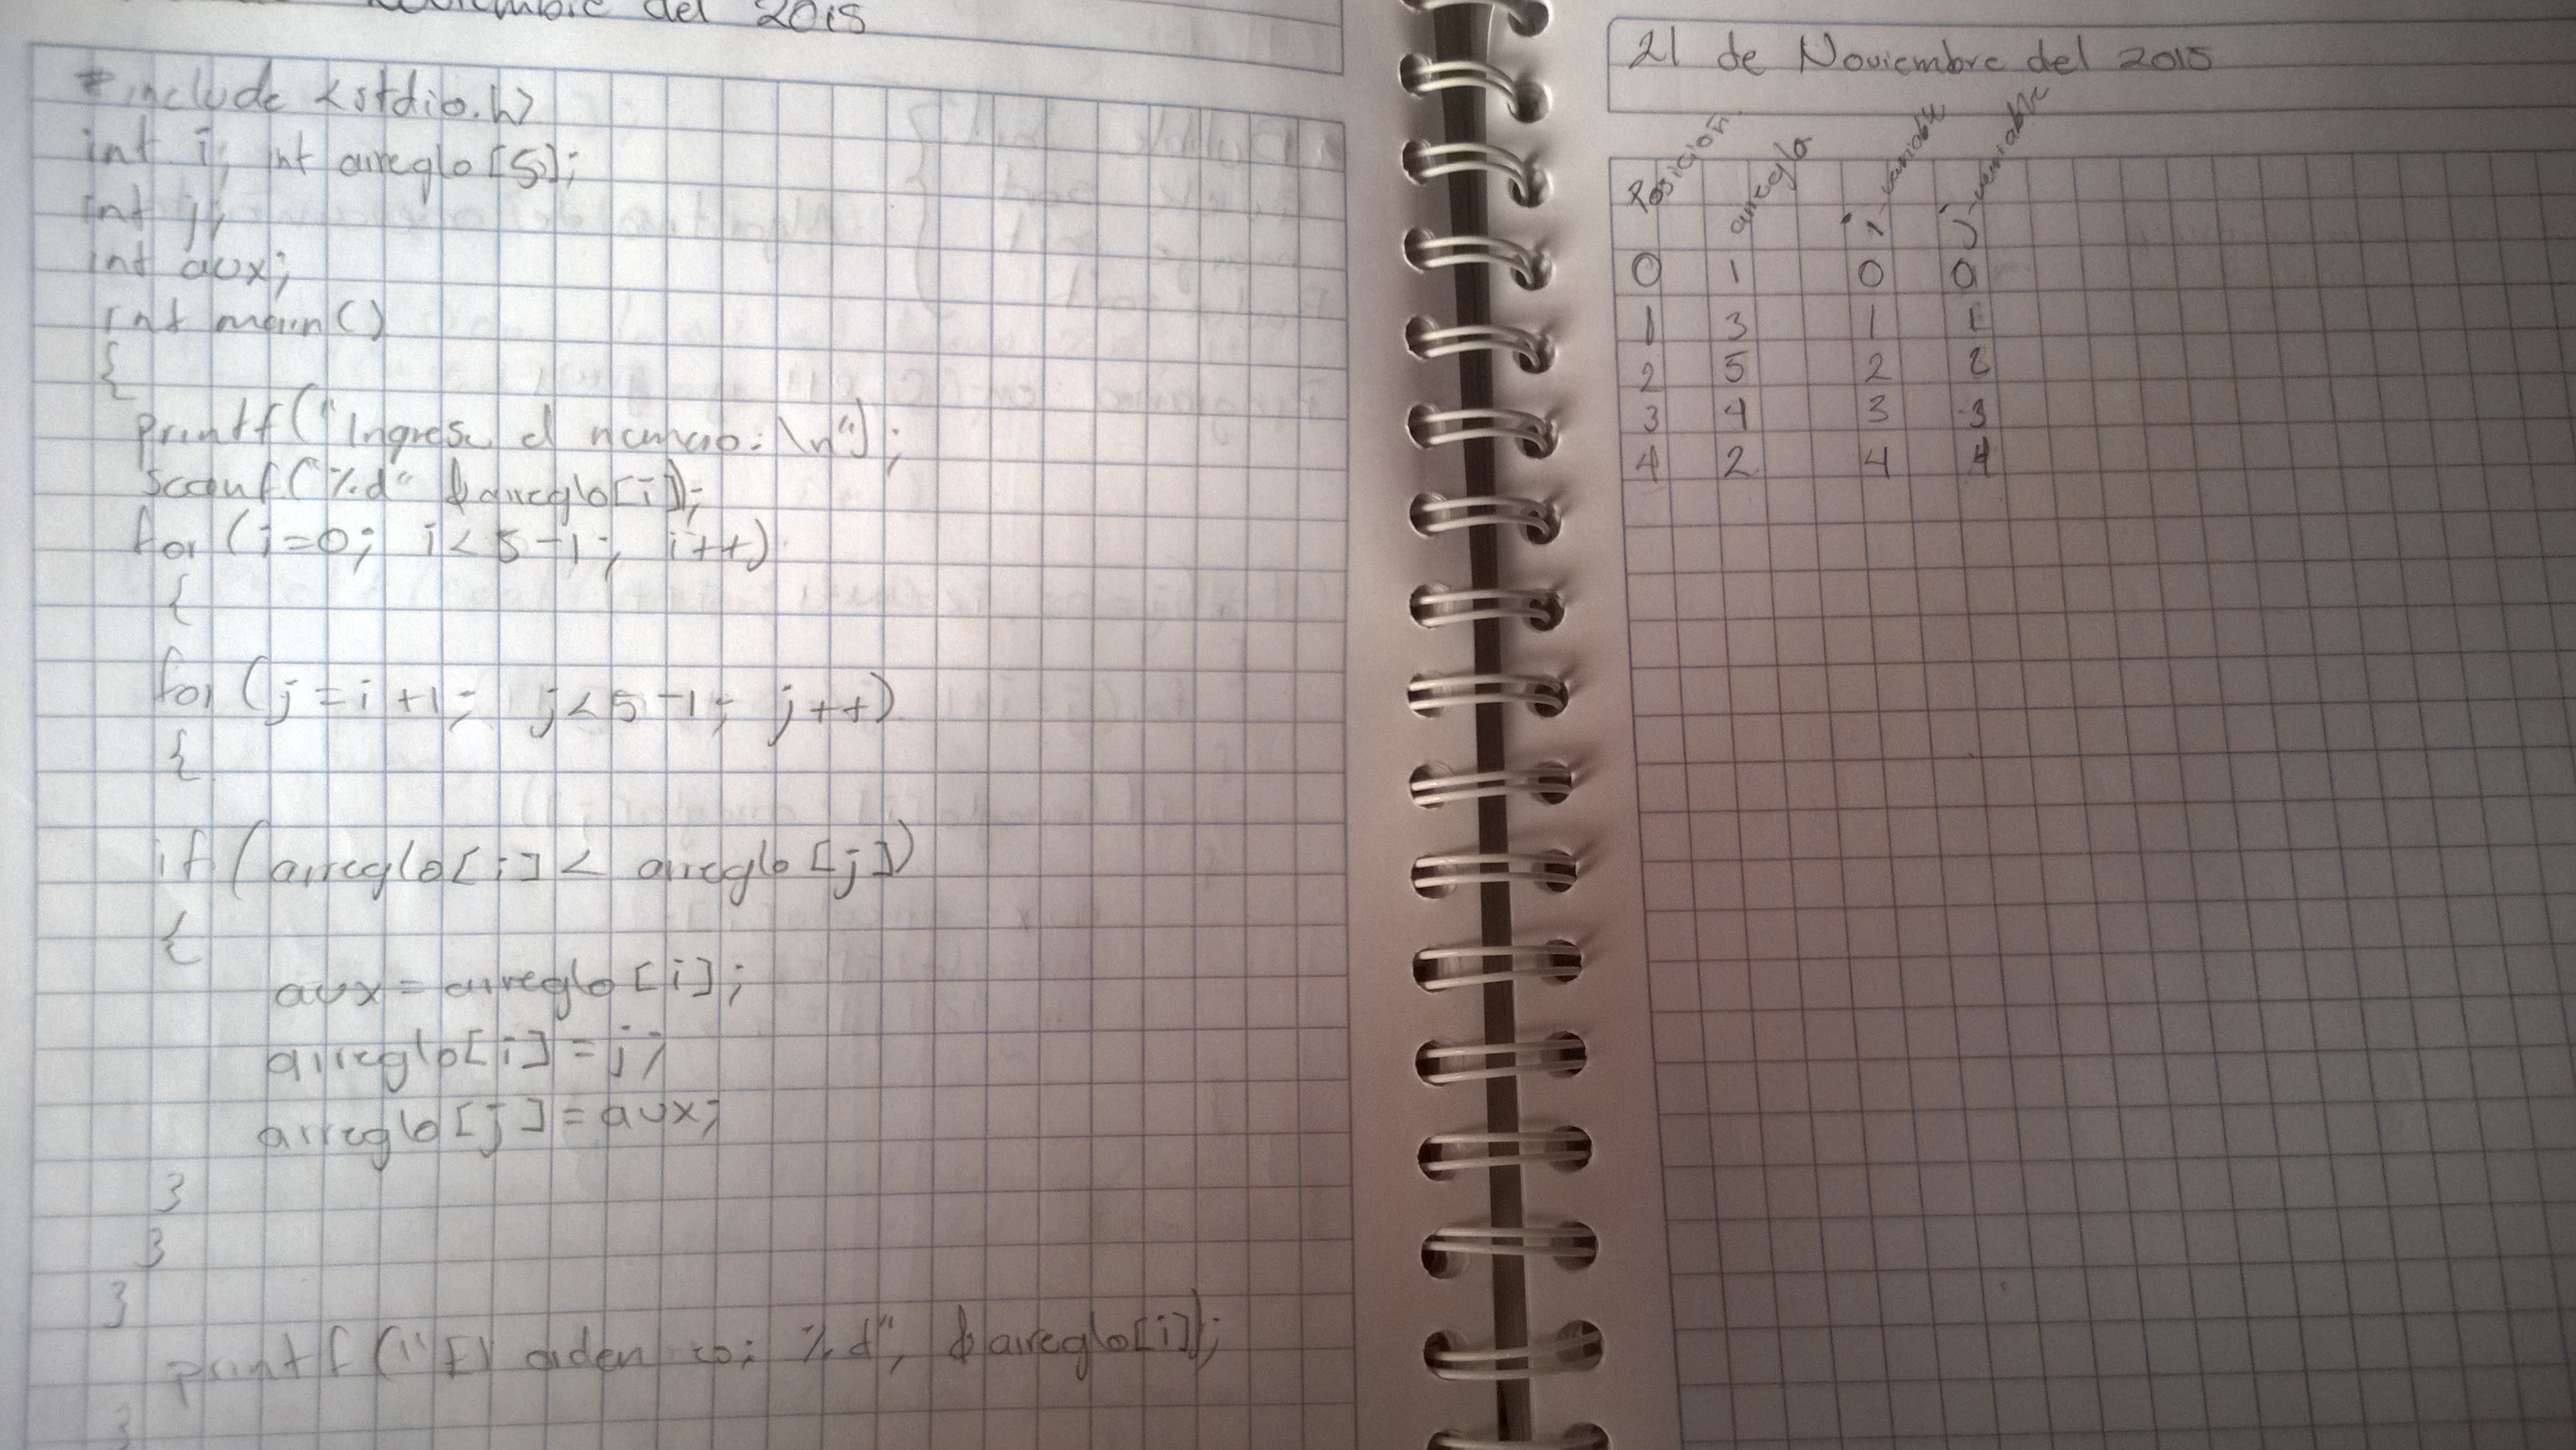 Noviembre del 2015
#include <stdio.h>
int i; int arreglo[5];
int j;
int aux;
int main()
{
printf("Ingrese el numero: \n");
scanf("%d" &arreglo[i]);
for (i=0; i<5-1; i++)
{
for (j=i+1; j<5-1; j++)
{
if (arreglo[i] < arreglo[j])
{
aux=arreglo[i];
arreglo[i]=j;
arreglo[j]=aux;
}
}
}
printf("El orden es: %d", &arreglo[i]);
}
21 de Noviembre del 2015
Posición arreglo i-variable j-variable
0 1 0 0
1 3 1 1
2 5 2 2
3 4 3 3
4 2 4 4